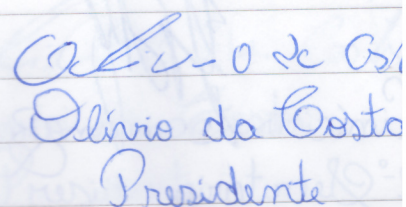 Olívio da Costa
Presidente